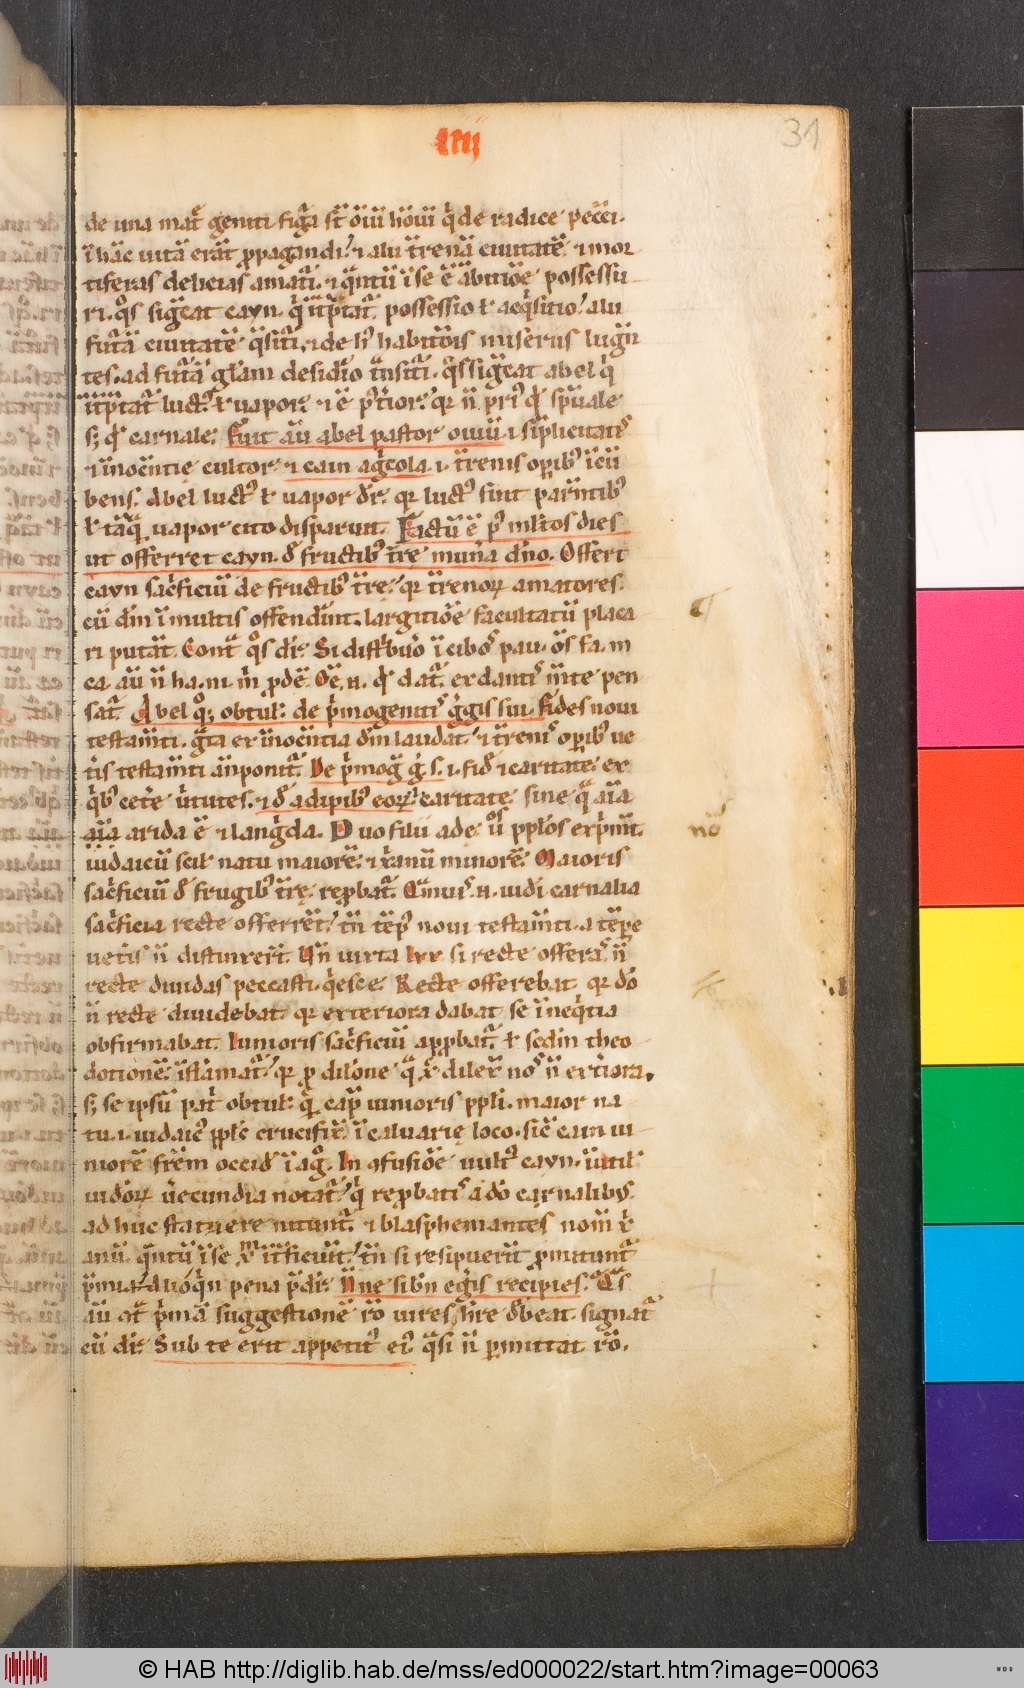 IIII
31
de una mat̄ geniti figa st oīu hoīu q̄ de radice pecci.
ī hac uita erāt ꝓpagandi. ⁊ alii t̄renā ciuitatē ⁊ mor
tiferas delicias amat̄i. ⁊ q̄ntū ī se ē ābitiōe possessu
ri. q̊s sig̅cat cayn. q̇ itp̄tat̄ possessio ł acq̇sitio. alii
fut̄ā ciuitatē q̄sit̄i. ⁊ de h̾ habitōis miseriis lugn̄
tes. ad fut̄ā gl̄am desidīo t̄nsit̄i. q̊s sig̅cat abel q̇
itp̄tat̄ luct᷒ ł uapor. ⁊ ē p̾tior. qr n̄ pri᷒ qđ spūale
s; qđ carnale. Fuit aū abel pastor ouiū ⁊ sīplicitatis
⁊ īnocentie cultor. ⁊ cain ag̊cola .i. t̄renis oꝑib᷒ īcū
bens. Abel luct᷒ ł uapor dr̄. qr luct᷒ fuit parn̄tib᷒
ł tāq̄ uapor cito disparuit. Factū ē p᷒ mltos dies
ut offerret cayn đ fructib᷒ t̄re mun̄a dn̄o. Offert
cayn sac̊ficiū de fructib᷒ t̄re. qr t̄renoꝝ amatores
cū dm̄ ī multis offendūt. largitiōe facultatū placa
ri putāt. Cont̄ q̊s dr̄. Si dist̊buo ī cibos pau. oēs fa. m
ea. aū n̄ ha. ni. m̊ ꝓdē. Oē .n. qđ dat̄ ex dantis mn̄te pen
sat̄. Abel q̊q; obtul. de p̊mogenitis g̊gis sui. Fides noui
testam̄ti. g̅ta ex īnocentia dm̄ laudat. ⁊ t̄renis oꝑib᷒ ue
t̄is testam̄ti ānponit̄. De p̊mog̅ g̊. s. i. fid̾ ⁊ caritate. ex
q̊b᷒ cet̄e ūtutes. ⁊ đ adipib᷒ eoꝝ. caritate. sine q̄ aīa
aīa arida ē ⁊ lang̊da. Duo filii ade. u᷒os pplos exp̊mūt.
iudaicū scił natu maiorē. ⁊ xp̄ianū minorē. Maioris
sac̊ficiū đ frugib᷒ t̄rę reꝓbat̄. Cuius .n. iudi carnalia
sac̊ficia recte offerrēt. tn̄ tēp᷒ noui testam̄ti. a tēpe
uet̄is n̄ distinxer̄t. Un̄ iuxta lxx si recte offeras. n̄
recte diuidas peccasti. q̊esce. Recte offerebat qr dō
n̄ recte diuidebat. qr exteriora dabat se ī neq̊tia
obfirmabat. Iunioris sac̊ficiū apꝓbat̄. ł sedm̄ theo
dotionē. īflāmat̄. qr ꝓ dil̄one q̄ xp̄c dilex̄ nos n̄ ext̄iora.
s; se ipsū pat̊ obtul. q̊ cap̄ iunioris ppli. maior na
tu .i. iudaic᷒ ppłs crucifix̄ ī caluarie loco. sic̄ cain iu
niorē fr̄em occid̾ ī ag̊. In ɔfusiōe uult᷒ cayn. īutil
iudoꝝ ūecundia notat̄. q̇ reꝓbatis a dō carnalib᷒
ad huc statuere nitunt̄. ⁊ blasphemantes nom̄ xp̄i
anū. q̄ntū ī se xp̄m īt̄ficiūt. tn̄ si resipuer̄t ꝓmittunt̄
p̄mia. Alioq̇n pena p̄dr̄. Un̄e sibn̄ eg̊is recipies. Oēs
aū at̄ p̊mā suggestionē rō uires h̄re đbeat. signat̄
cū dr̄. Sub te erit appetit᷒ ei᷒. q̄si n̄ ꝑmittat rō.
nō
© HAB http://diglib.hab.de/mss/ed000022/start.htm?image=00063